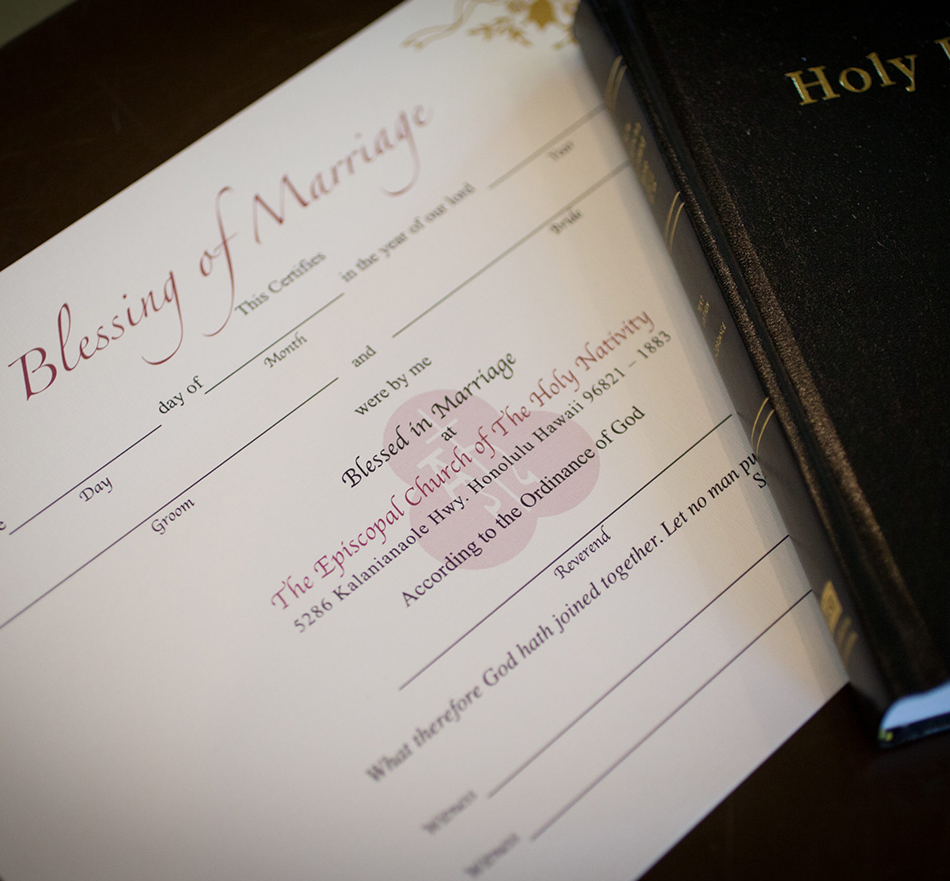 Holy
Blessing of Marriage
This Certifies
day of in the year of our lord
Day Month Year
and
Groom Bride
were by me
Blessed in Marriage
at
The Episcopal Church of The Holy Nativity
5286 Kalanianaole Hwy. Honolulu Hawaii 96821 – 1883
According to the Ordinance of God
Reverend
What therefore God hath joined together. Let no man pu
S
Witness
Witness